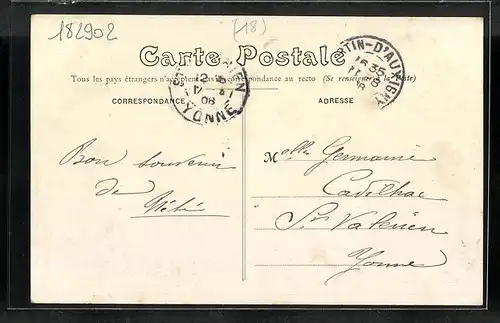 182902
(18)
Carte Postale
Tous les pays étrangers n'acceptent pas la correspondance au recto (Se renseigner à la Poste)
CORRESPONDANCE
ADRESSE
YONNE
08
TIN-D'AUXIGNY
Bon souvenir
de
Melle Germaine
Cadilhac
St Valérien
Yonne